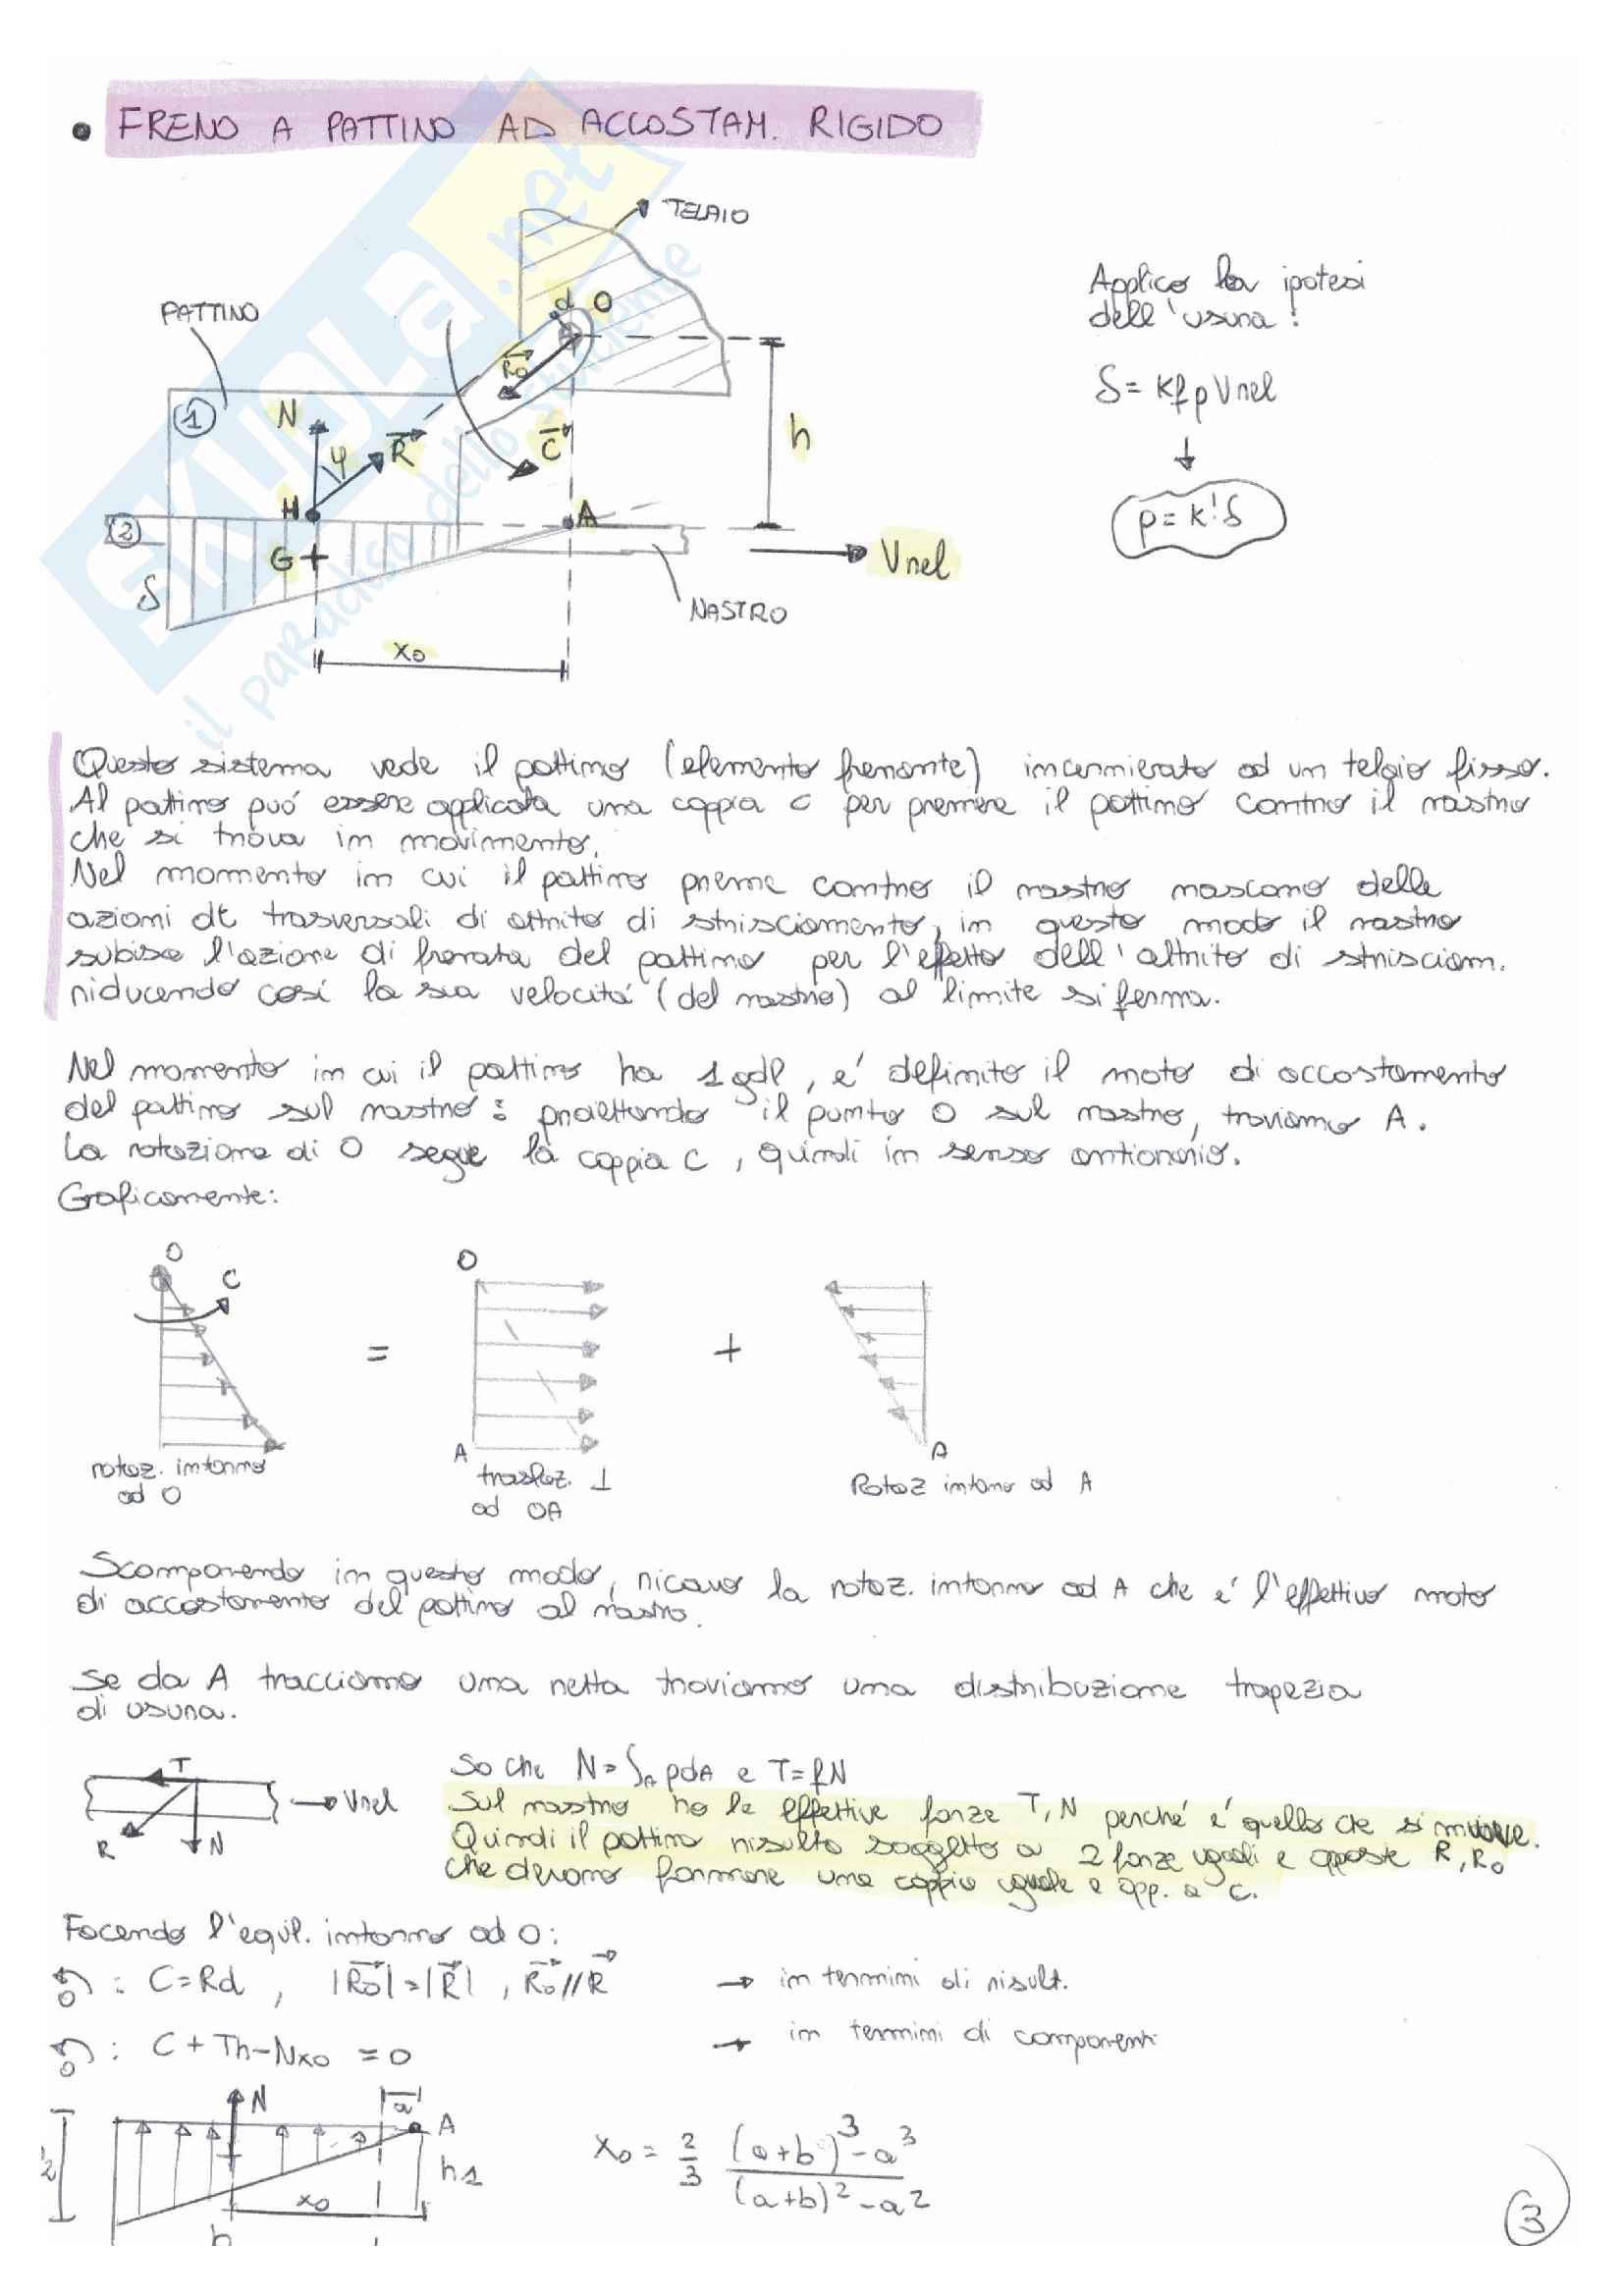 • FRENO A PATTINO AD ACCOSTAM. RIGIDO
SKUOLA.net
il paradiso dello studente
TELAIO
PATTINO
d O
R₀
1
N
φ
R
C
h
H
A
2
G
δ
Vrel
NASTRO
x₀
Applico la ipotesi
dell'usura:
δ = kfpVrel
↓
p = k'δ
Questo sistema vede il pattino (elemento frenante) incernierato ad un telaio fisso.
Al pattino può essere applicata una coppia c per premere il pattino contro il nastro
che si trova in movimento.
Nel momento in cui il pattino preme contro il nastro nascono delle
azioni dt trasversali di attrito di strisciamento, in questo modo il nastro
subisce l'azione di frenata del pattino per l'effetto dell'attrito di strisciam.
riducendo così la sua velocità (del nastro) al limite si ferma.
Nel momento in cui il pattino ha 1 gdl, e' definito il moto di accostamento
del pattino sul nastro: proiettando il punto O sul nastro, troviamo A.
La rotazione di O segue la coppia C, quindi in senso antiorario.
Graficamente:
O
C
rotaz. intorno
ad O
=
O
A
traslaz. ⊥
ad OA
+
A
Rotaz intorno ad A
Scomponendo in questo modo, ricavo la rotaz. intorno ad A che e' l'effettivo moto
di accostamento del pattino al nastro.
Se da A tracciamo una retta troviamo una distribuzione trapezia
di usura.
T
Vrel
R
N
So che N = ∫ₐ pdA e T = fN
Sul nastro ho le effettive forze T, N perché e' quello che si muove.
Quindi il pattino risulta soggetto a 2 forze uguali e opposte R, R₀
che devono formare una coppia uguale e opp. a C.
Facendo l'equil. intorno ad O:
O : C = Rd , |R₀| = |R| , R₀ // R → in termini di risult.
O : C + Th - Nx₀ = 0 → in termini di componenti
N
a
A
h₁
x₀
b
x₀ = 2/3 (a+b)³ - a³ / (a+b)² - a²
3